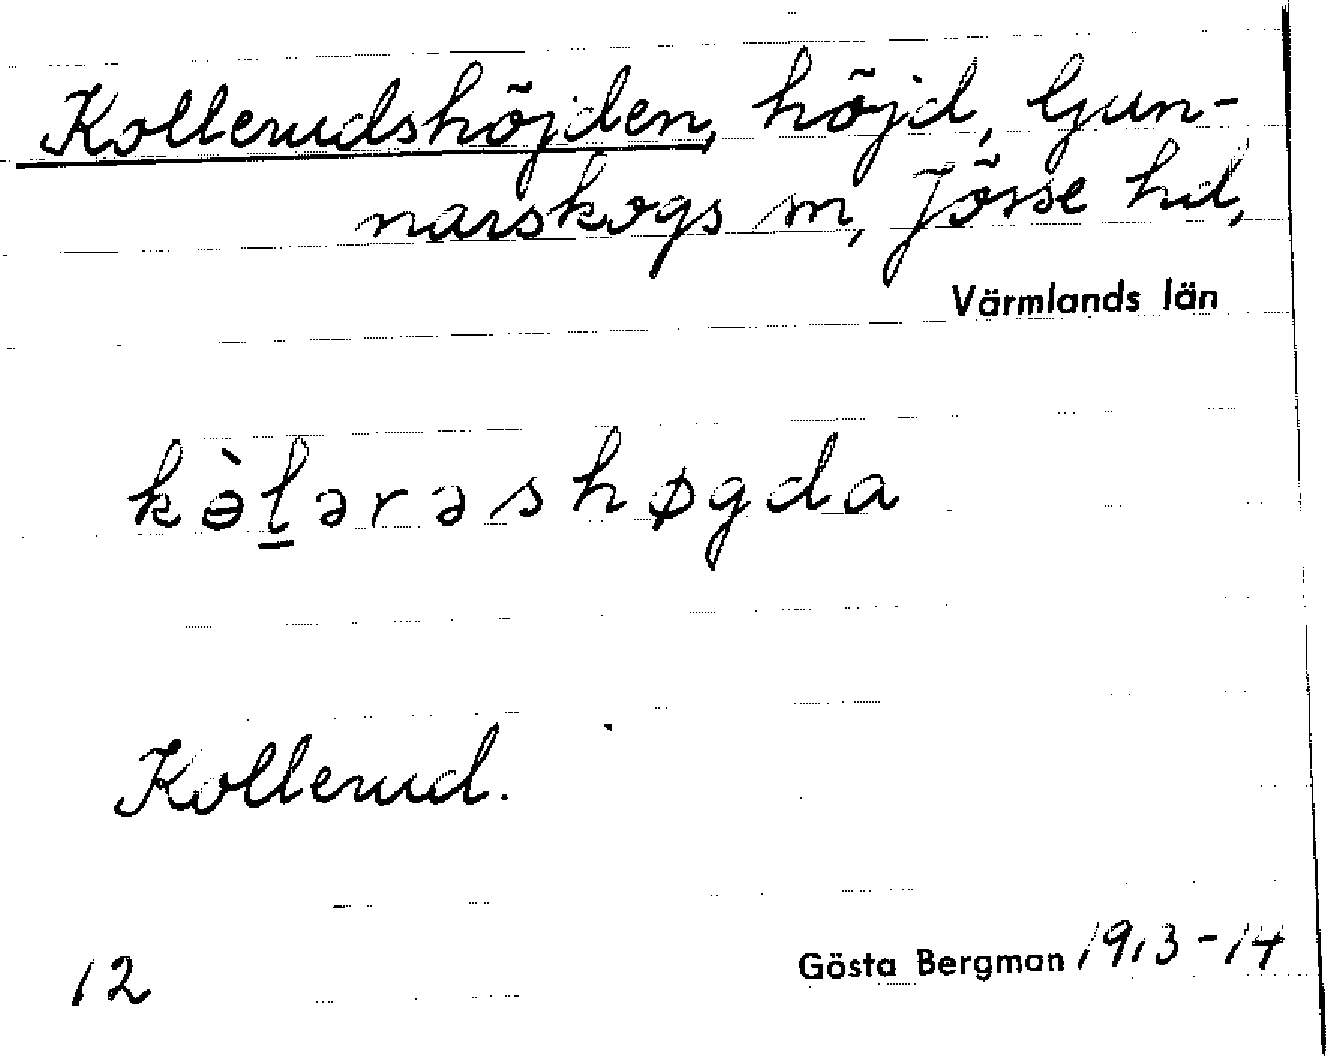 Kollerudshöjden, höjd, Gun-
narskogs sn, Jösse hd,
Värmlands län
kɵ̀l̠ərəshøgda
Kollerud.
12
Gösta Bergman 1913-14